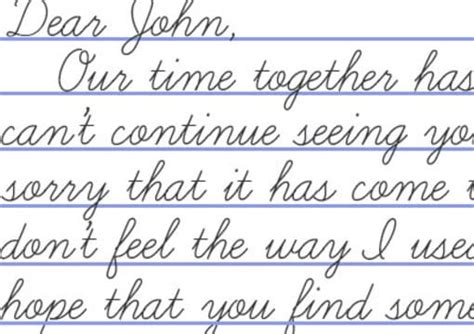 Dear John,
Our time together has
can't continue seeing you
sorry that it has come t
don't feel the way I used
hope that you find some